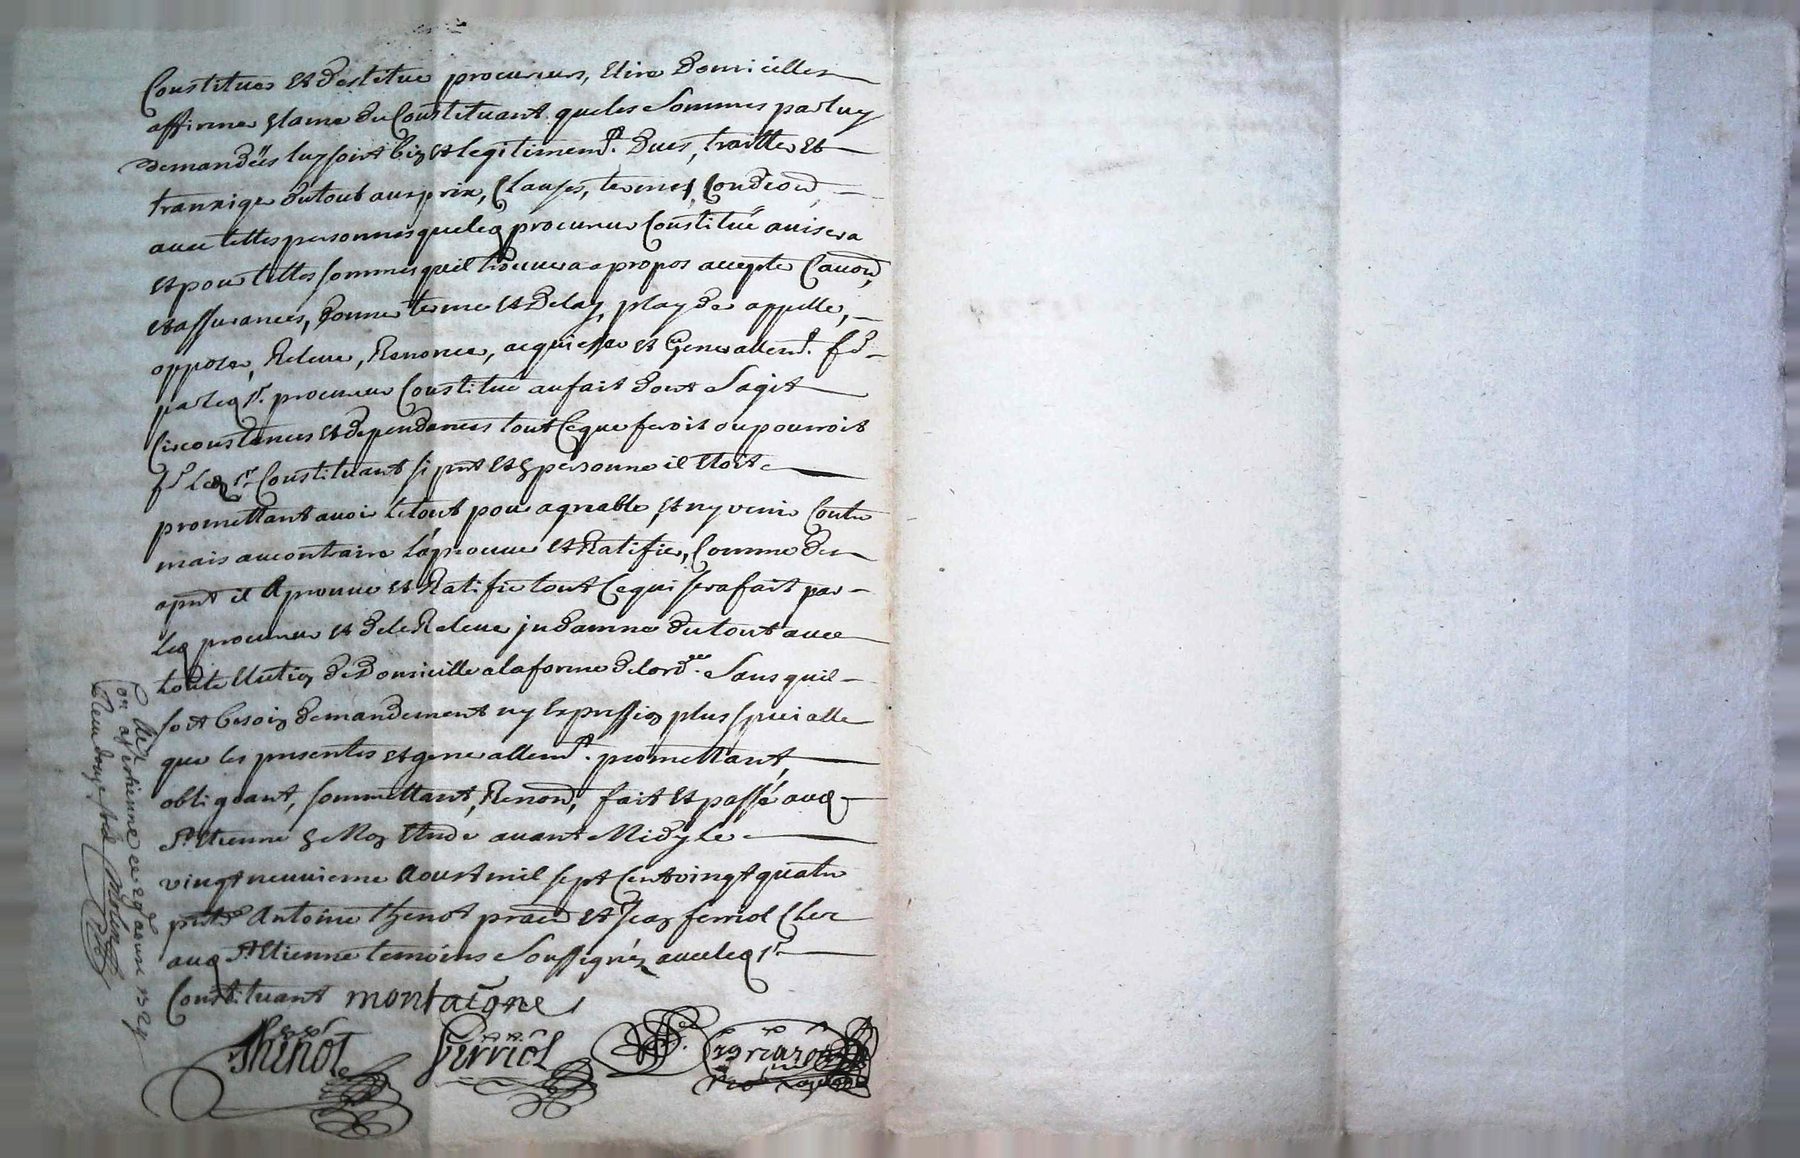 Constituer et destituer procureurs, Elire Domicilles
affirmer Lame du Constituant que les Sommes par luy
demandées luy soint bien et legitimemt. Dues, traitter et
tranxiger du tout aux prix, Clauses, termes, Condeons,
avec telles personnes que led procureur Constitué avisera
et pour telles sommes quil trouvera a propos accepter Cauons,
et assurances, Donner terme et Delay, playder appeller,
opposer, Relever, Renoncer, acquiesser et Generallemt. fe
par led sr. procureur Constitué au fait dont Sagit
Circonstances et dependances tout Ce que feroit ou pourroit
fe led sr Constituant si pnt et en personne il Etoit
promettant avoir le tout pour agreable, et ny venir Contre
mais au contraire Laprouver et Ratifier, Comme des
apnt il Aprouve et Ratifie tout Ce qui sera fait par
led procureur et de le Relever jndamne du tout avec
toute Election de Domicille a la forme de lordce. Sans quil
soit besoin de mandement ny Expression plus specialle
que les presentes et generallemt. promettant,
obligeant, soumettant, Renond, fait et passé aud
St. Etienne en Mon Etude avant Midy Le
vingt neuvieme Aoust mil sept Cent vingt quatre
Antoine thenot pratn et Jean ferriol Clerc
aud St. Etienne temoins Soussignés avec led sr.
Constituant montaigne
Thenot ferriol
Con. a st etienne ce 29 aoust 1724